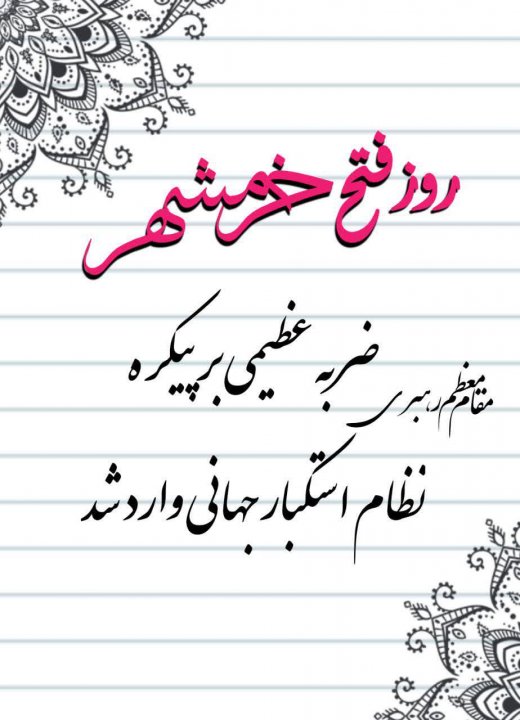 روز فتح خرمشهر
ضربه عظیمی بر پیکره
مقام معظم رهبری
نظام استکبار جهانی وارد شد